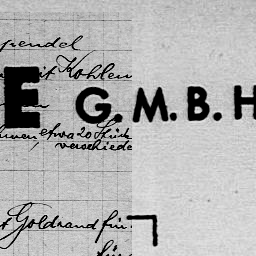 pendel
mit Kohlen
E G.M.B.H
etwa 20 Stück
verschiede
Goldrand für
für